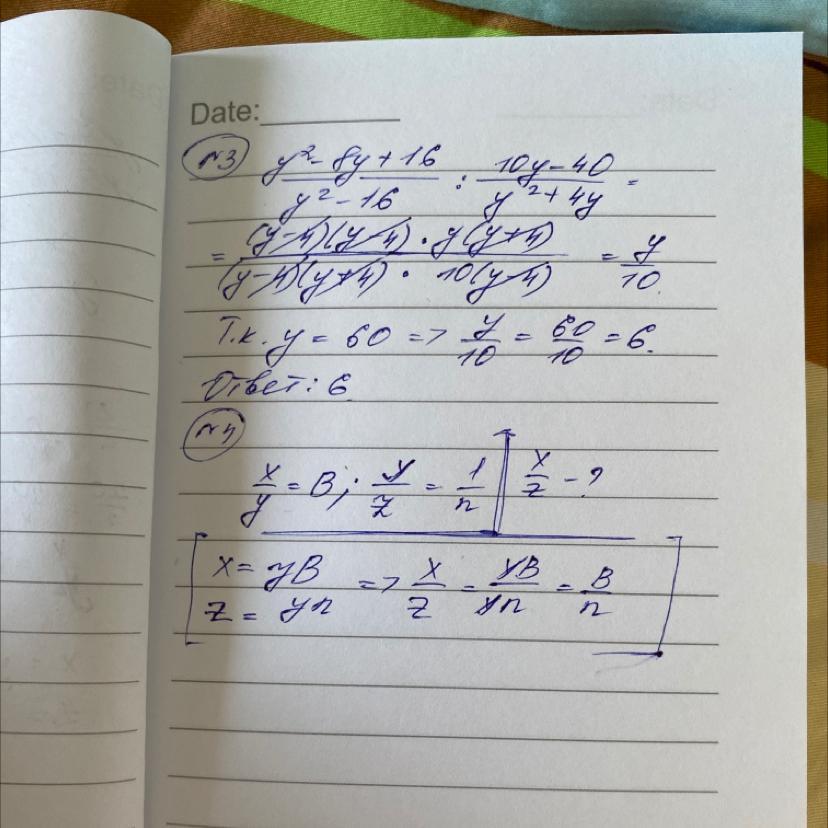 Date:
№3 y² - 8y + 16 / y² - 16 : 10y - 40 / y² + 4y =
= (y-4)(y-4) · y(y+4) / (y-4)(y+4) · 10(y-4) = y / 10
Т.к. y = 60 => y/10 = 60/10 = 6.
Ответ: 6
№4
x/y = B; y/z = 1/n | x/z - ?
x = yB
z = yn => x/z = yB/yn = B/n